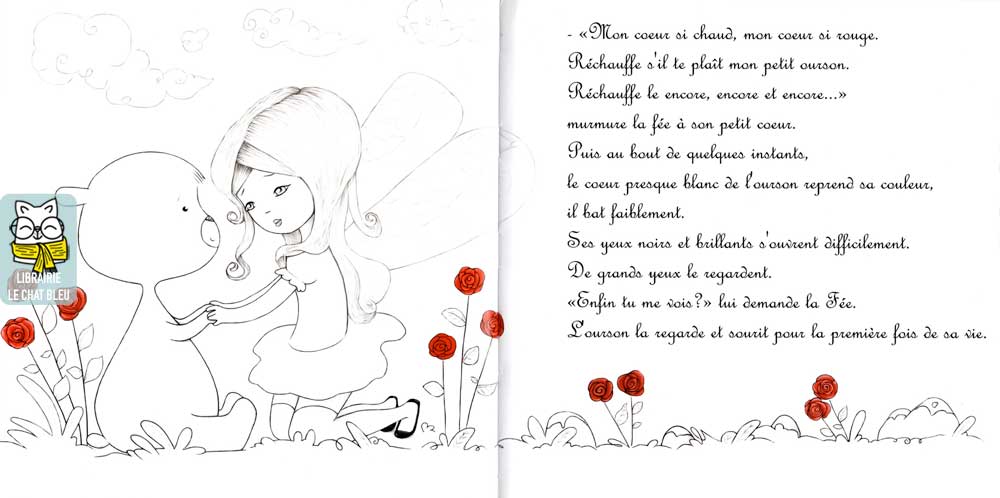 LIBRAIRIE
LE CHAT BLEU
- «Mon coeur si chaud, mon coeur si rouge.
Réchauffe s'il te plaît mon petit ourson.
Réchauffe le encore, encore et encore...»
murmure la fée à son petit coeur.
Puis au bout de quelques instants,
le coeur presque blanc de l'ourson reprend sa couleur,
il bat faiblement.
Ses yeux noirs et brillants s'ouvrent difficilement.
De grands yeux le regardent.
«Enfin tu me vois?» lui demande la Fée.
L'ourson la regarde et sourit pour la première fois de sa vie.